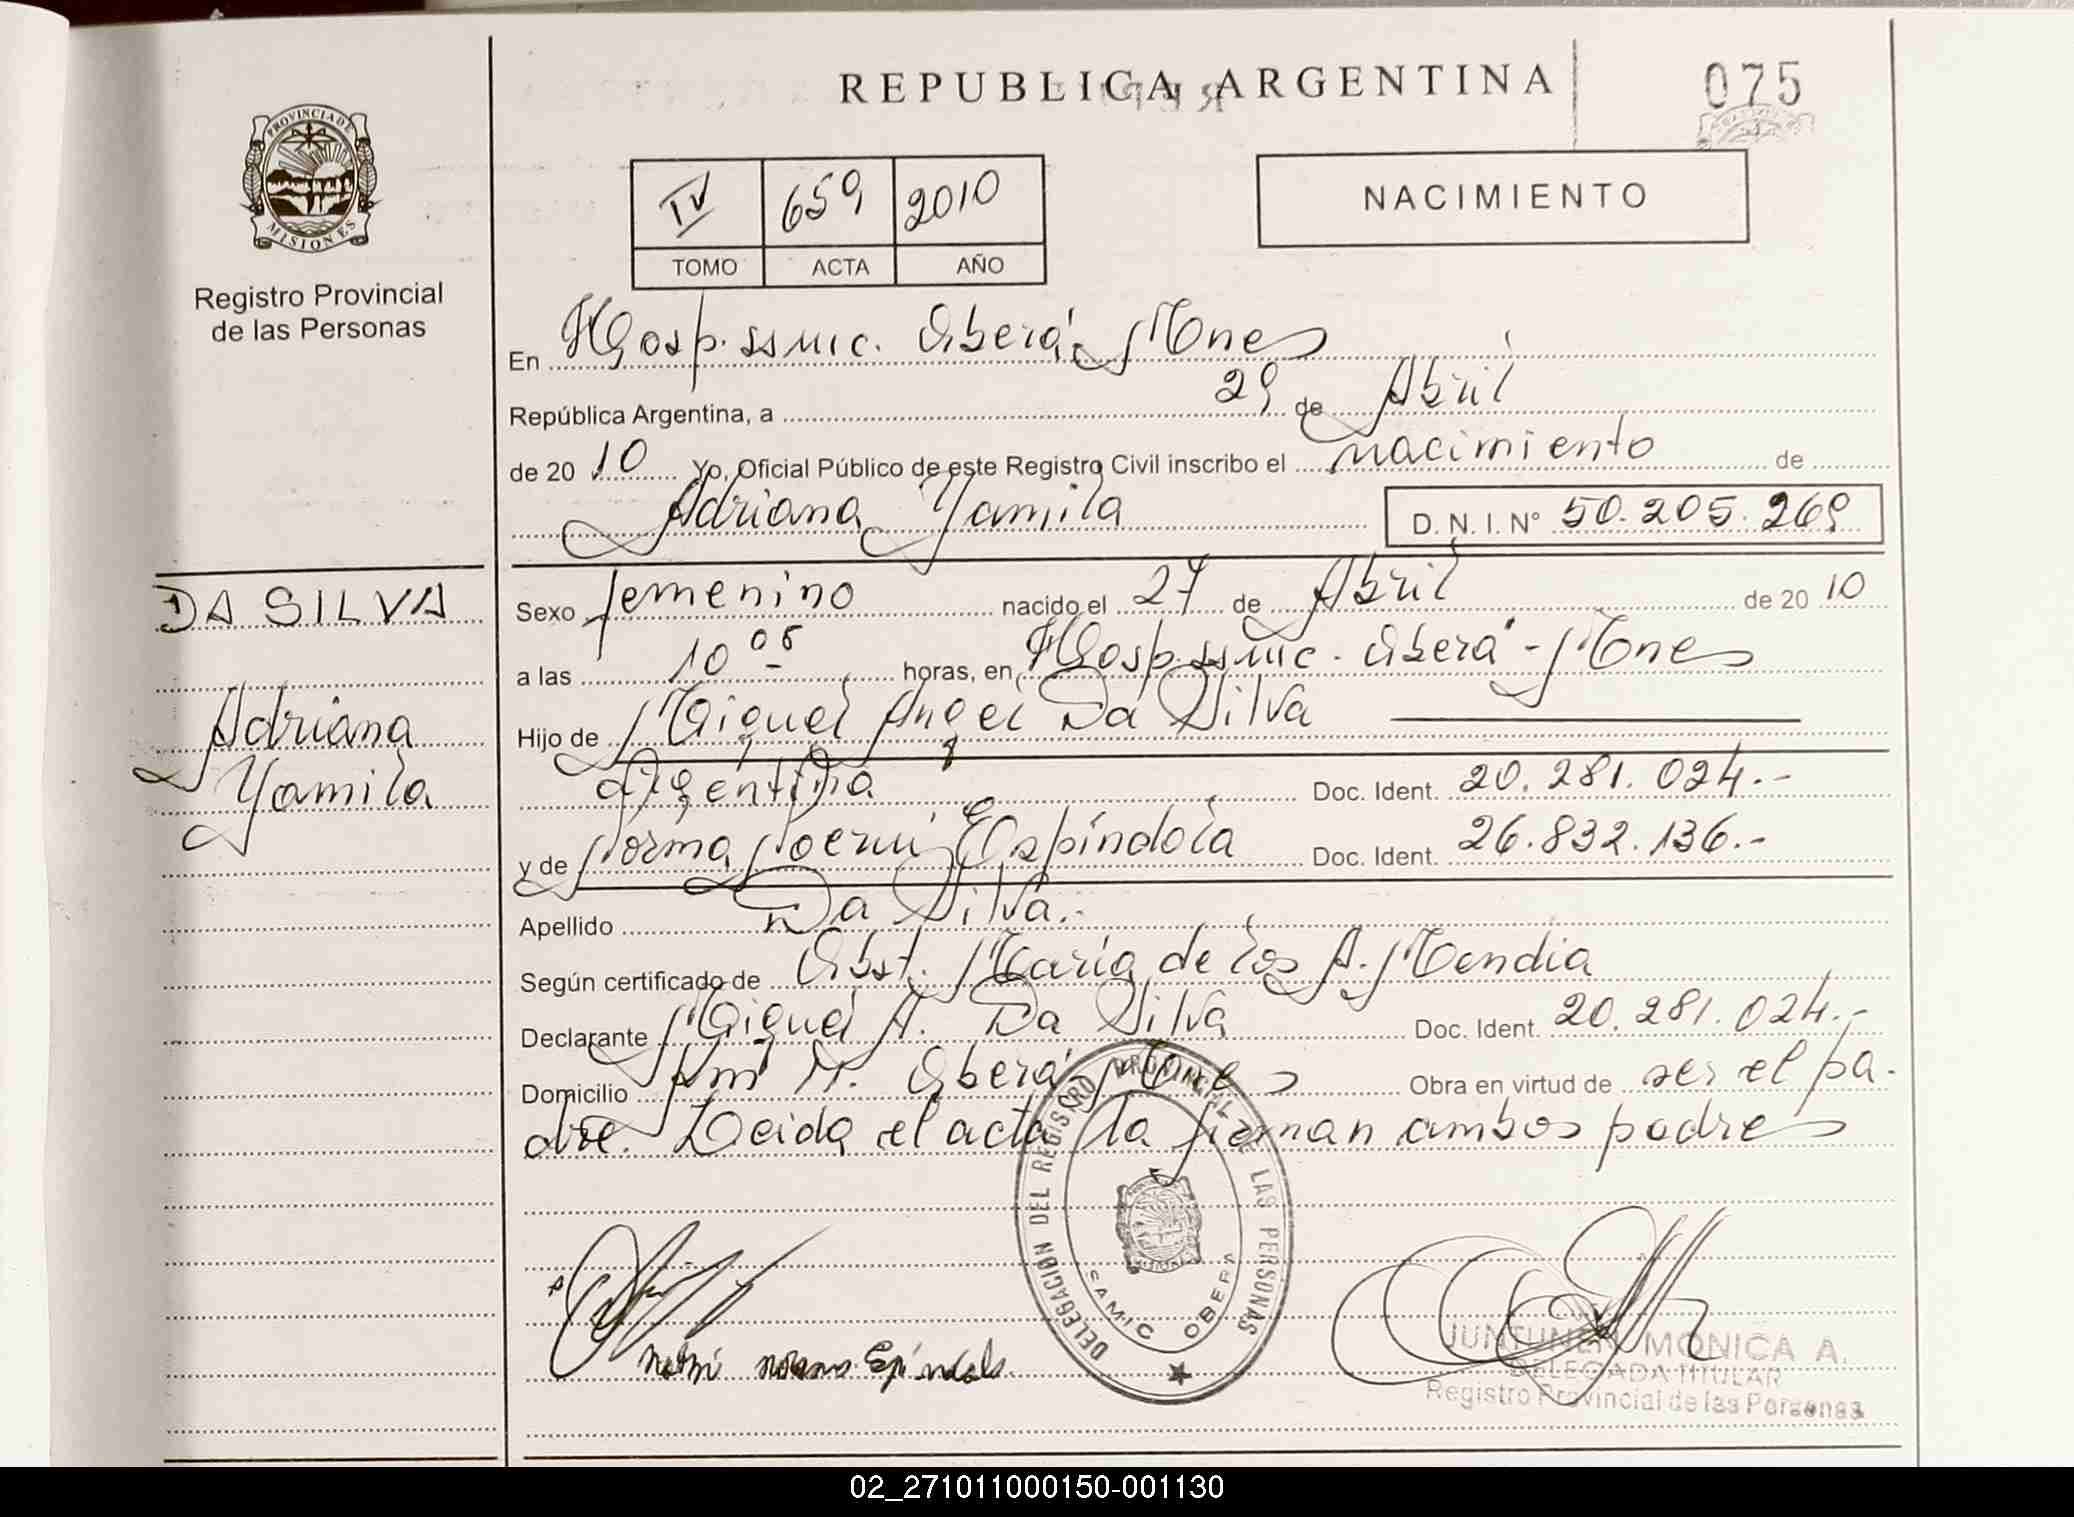 REPUBLICA ARGENTINA
075
PROVINCIA DE
MISIONES
Registro Provincial
de las Personas
IV 659 2010
TOMO ACTA AÑO
NACIMIENTO
En Hosp. SSMIC. Oberá - Mnes
República Argentina, a 29 de Abril
de 20 10 Yo, Oficial Público de este Registro Civil inscribo el nacimiento de
Adriana Yamila D. N. I. N° 50.205.269
DA SILVA
Adriana
Yamila
Sexo femenino nacido el 27 de Abril de 20 10
a las 10 05 horas, en Hosp. SSMIC. Oberá - Mnes
Hijo de Miguel Angel Da Silva
Argentina Doc. Ident. 20.281.024.-
y de Norma Noemí Espíndola Doc. Ident. 26.832.136.-
Apellido Da Silva.-
Según certificado de Obst. María de los A. Mendia
Declarante Miguel A. Da Silva Doc. Ident. 20.281.024.-
Domicilio Km M. Oberá Mnes Obra en virtud de ser el pa-
dre. Leida el acta la firman ambos padres
DELEGACION DEL REGISTRO PROVINCIAL DE LAS PERSONAS
SAMIC OBERA
MISIONES
JUNTUNEN MONICA A.
DELEGADA TITULAR
Registro Provincial de las Personas
02_271011000150-001130